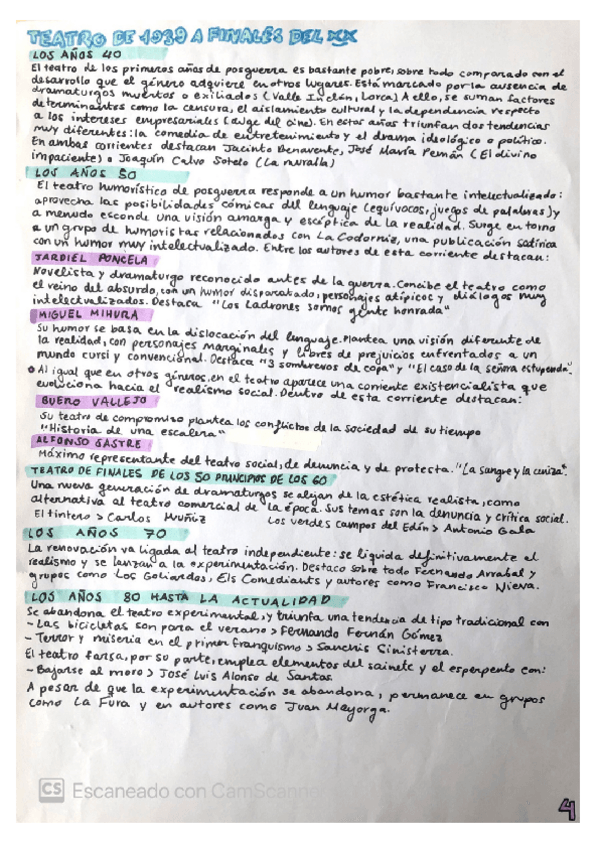 TEATRO DE 1939 A FINALES DEL XX
LOS AÑOS 40
El teatro de los primeros años de posguerra es bastante pobre, sobre todo comparado con el
desarrollo que el género adquiere en otros lugares. Está marcado por la ausencia de
dramaturgos muertos o exiliados (Valle Inclán, Lorca) A ello, se suman factores
determinantes como la censura, el aislamiento cultural y la dependencia respecto
a los intereses empresariales (auge del cine). En estos años triunfan dos tendencias
muy diferentes: la comedia de entretenimiento y el drama ideológico o político.
En ambas corrientes destacan Jacinto Benavente, José María Pemán (El divino
impaciente) o Joaquín Calvo Sotelo (La muralla)
LOS AÑOS 50
El teatro humorístico de posguerra responde a un humor bastante intelectualizado:
aprovecha las posibilidades cómicas del lenguaje (equívocos, juegos de palabras) y
a menudo esconde una visión amarga y escéptica de la realidad. Surge en torno
a un grupo de humoristas relacionados con La Codorniz, una publicación satírica
con un humor muy intelectualizado. Entre los autores de esta corriente destacan:
JARDIEL PONCELA
Novelista y dramaturgo reconocido antes de la guerra. Concibe el teatro como
el reino del absurdo, con un humor disparatado, personajes atípicos y diálogos muy
intelectualizados. Destaca "Los ladrones somos gente honrada"
MIGUEL MIHURA
Su humor se basa en la dislocación del lenguaje. Plantea una visión diferente de
la realidad, con personajes marginales y libres de prejuicios enfrentados a un
mundo cursi y convencional. Destaca "3 sombreros de copa" y "El caso de la señora estupenda".
Al igual que en otros géneros, en el teatro aparece una corriente existencialista que
evoluciona hacia el realismo social. Dentro de esta corriente destacan:
BUERO VALLEJO
Su teatro de compromiso plantea los conflictos de la sociedad de su tiempo
"Historia de una escalera"
ALFONSO SASTRE
Máximo representante del teatro social, de denuncia y de protesta. "La sangre y la ceniza".
TEATRO DE FINALES DE LOS 50 PRINCIPIOS DE LOS 60
Una nueva generación de dramaturgos se alejan de la estética realista, como
alternativa al teatro comercial de la época. Sus temas son la denuncia y crítica social.
El tintero > Carlos Muñiz Los verdes campos del Edén > Antonio Gala
LOS AÑOS 70
La renovación va ligada al teatro independiente: se liquida definitivamente el
realismo y se lanzan a la experimentación. Destaco sobre todo Fernando Arrabal y
grupos como Los Goliardos, Els Comediants y autores como Francisco Nieva.
LOS AÑOS 80 HASTA LA ACTUALIDAD
Se abandona el teatro experimental, y triunfa una tendencia de tipo tradicional con
- Las bicicletas son para el verano > Fernando Fernán Gómez
- Terror y miseria en el primer franquismo > Sanchis Sinisterra.
El teatro farsa, por su parte, emplea elementos del sainete y el esperpento con:
- Bajarse al moro > José Luis Alonso de Santos.
A pesar de que la experimentación se abandona, permanece en grupos
como La Fura y en autores como Juan Mayorga.
CS Escaneado con CamScanner
4